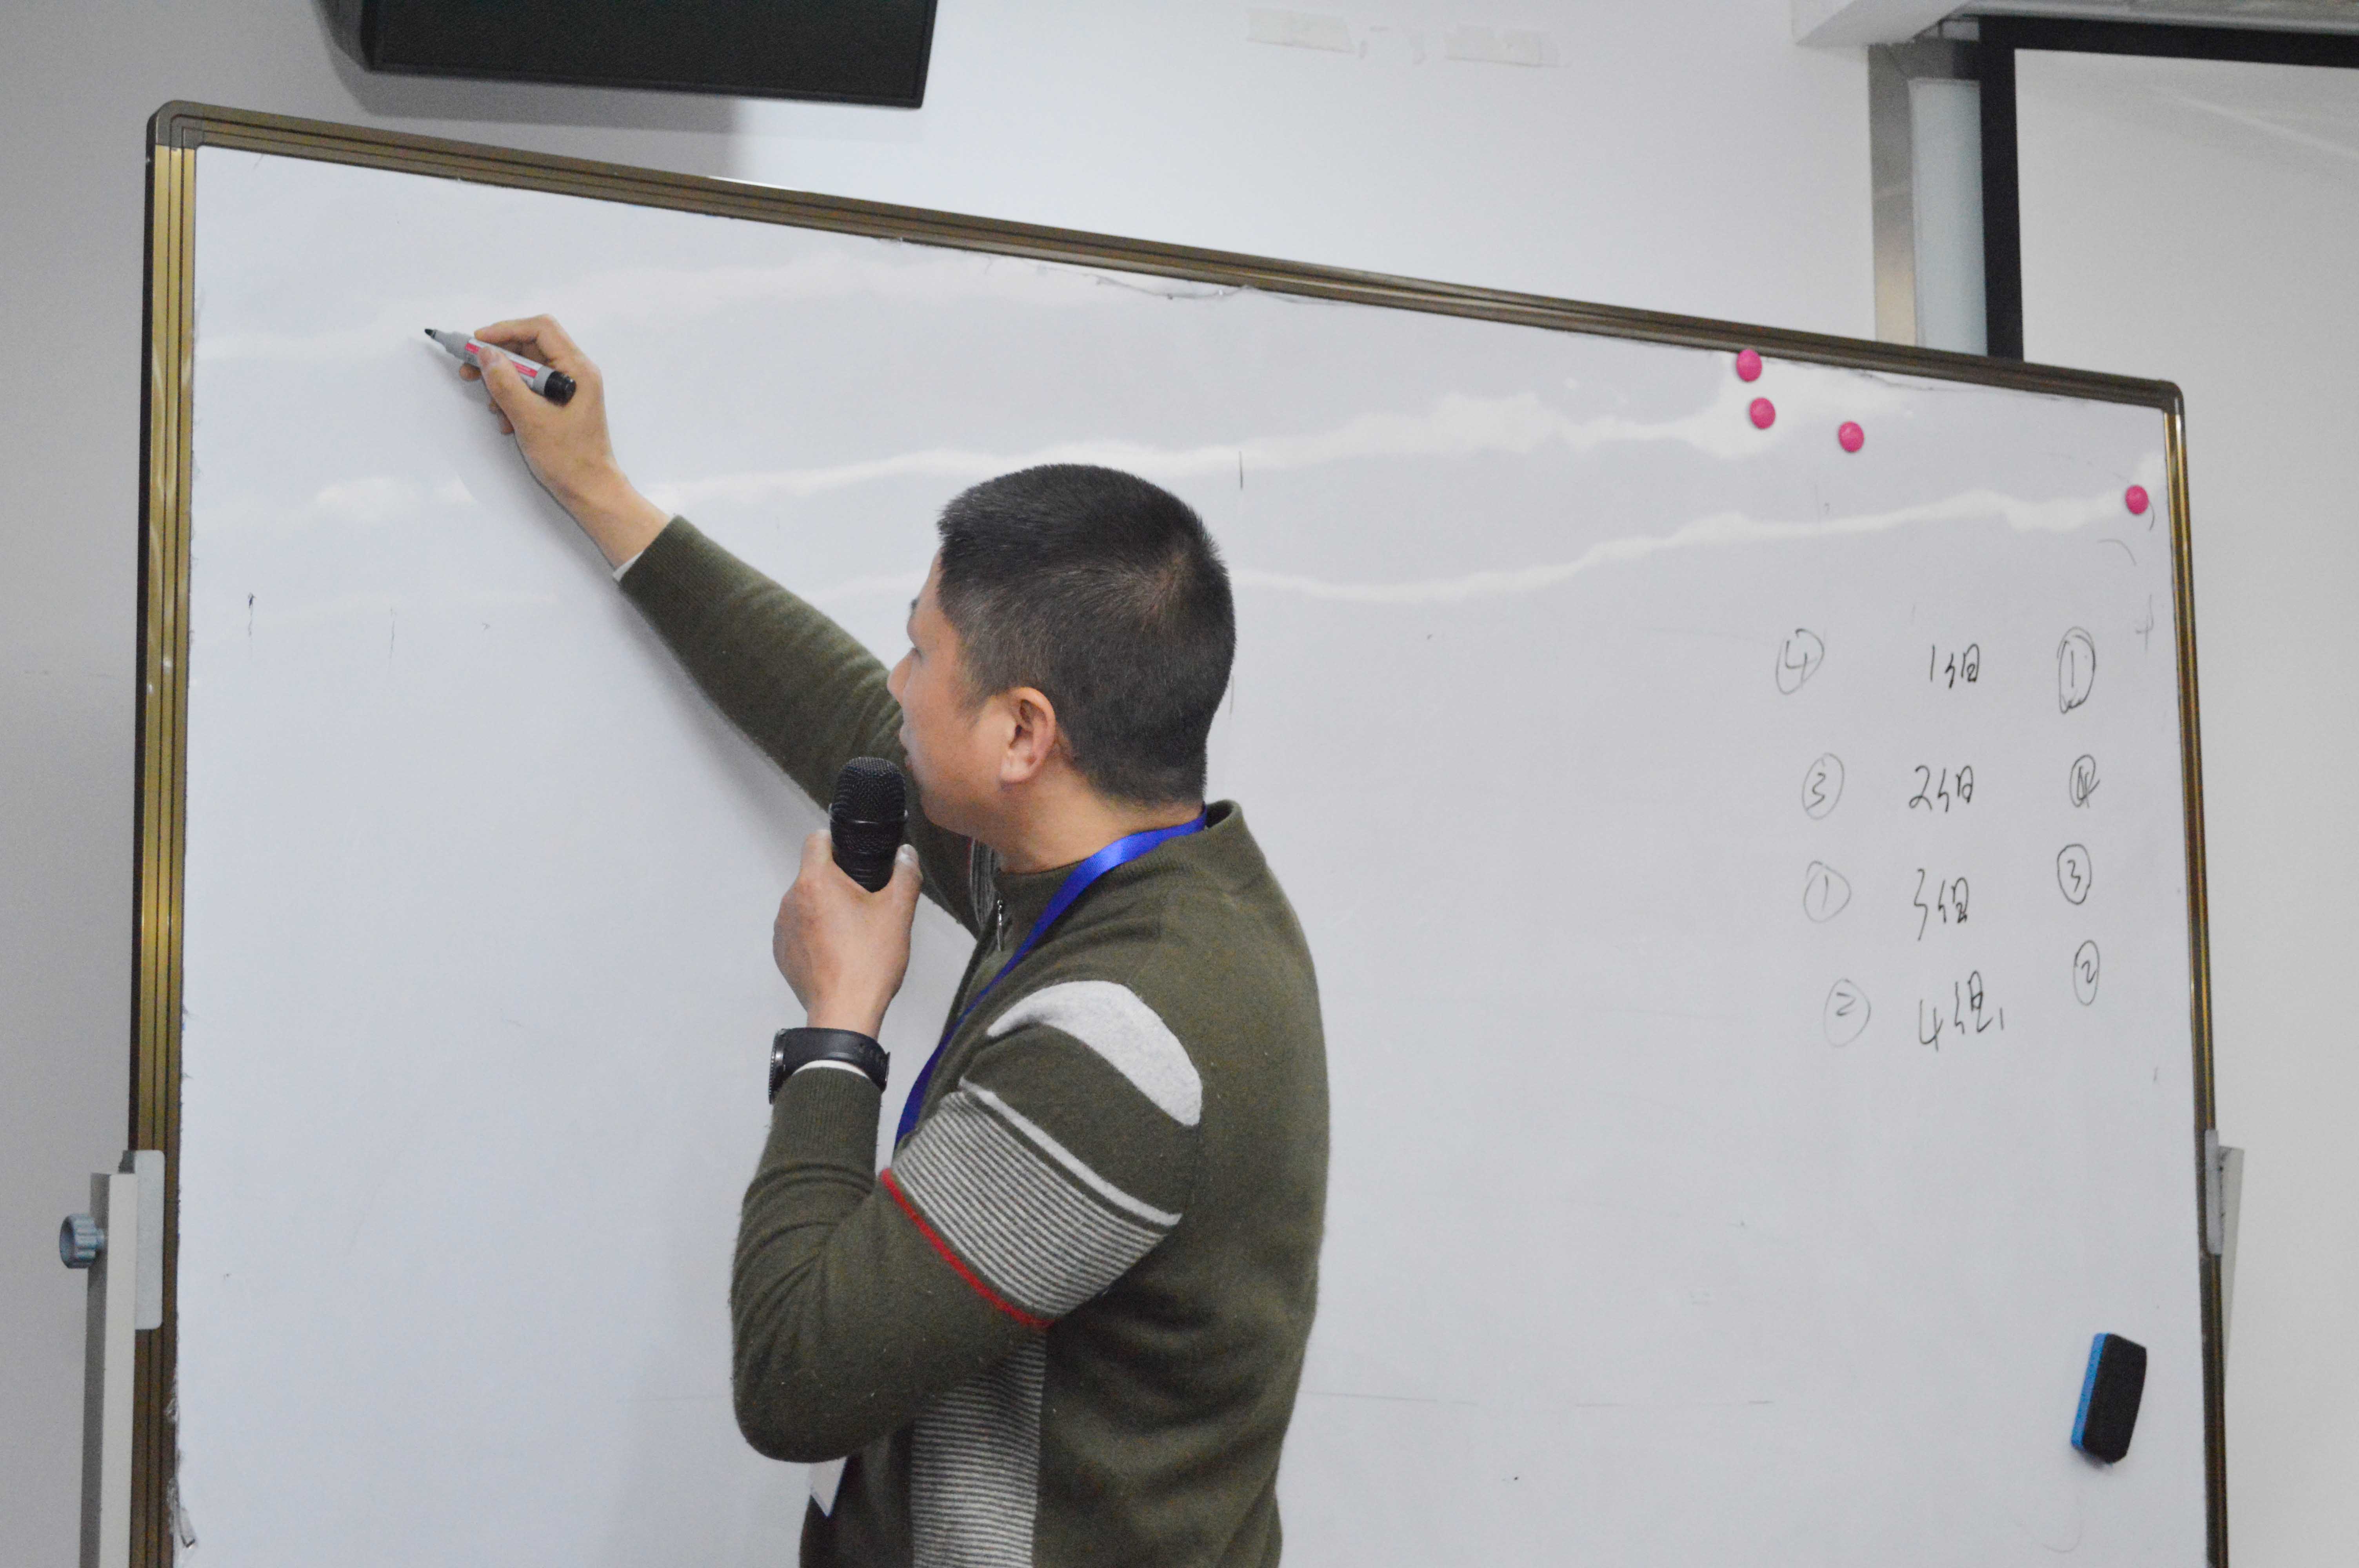 ④ 1组 ①
③ 2组 ④
① 3组 ③
② 4组
②